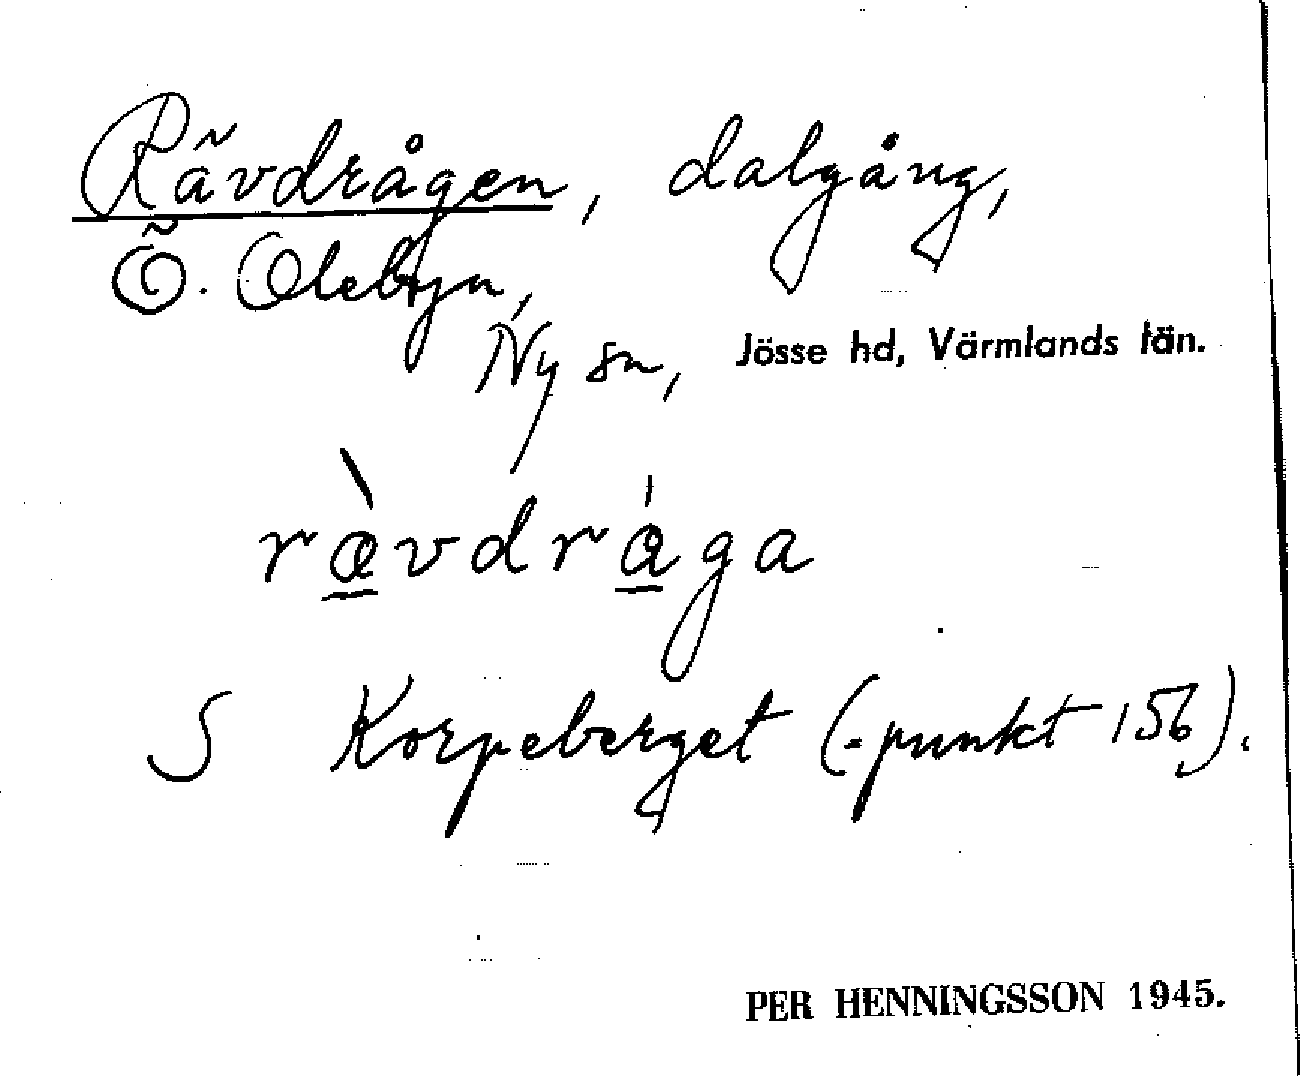 Rävdrågen, dalgång,
Ö. Olebyn,
Ny sn, Jösse hd, Värmlands län.
ræ̀vdrága
S Korpeberget (-punkt 156).
PER HENNINGSSON 1945.